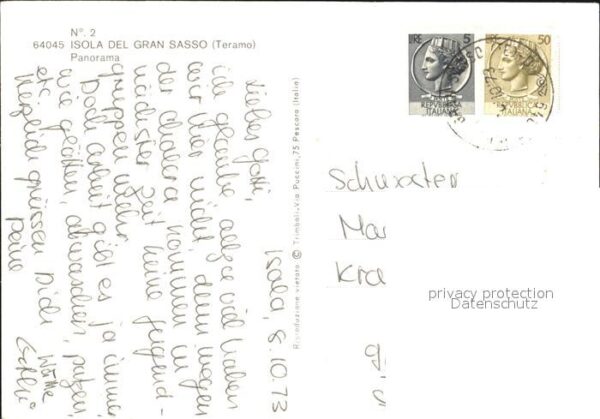 N°. 2
64045 ISOLA DEL GRAN SASSO (Teramo)
Panorama
LIRE 5
REPUBBLICA
ITALIANA
50
REPUBBLICA
ITALIANA
Isola, 8.10.73
ich glaube, allzu viel haben
wir hier nicht, denn wegen
der cholera kommen in
nächster Zeit keine Jugend-
gruppen mehr.
Doch arbeit gibt es ja immer,
wie glätten, abwaschen, putzen,
etc.
Herzlich grüssen Dich
Riproduzione vietata © Trimboli, Via Puccini, 75 Pescara (Italia)
Schwester
Ma
Kra
privacy protection
Datenschutz